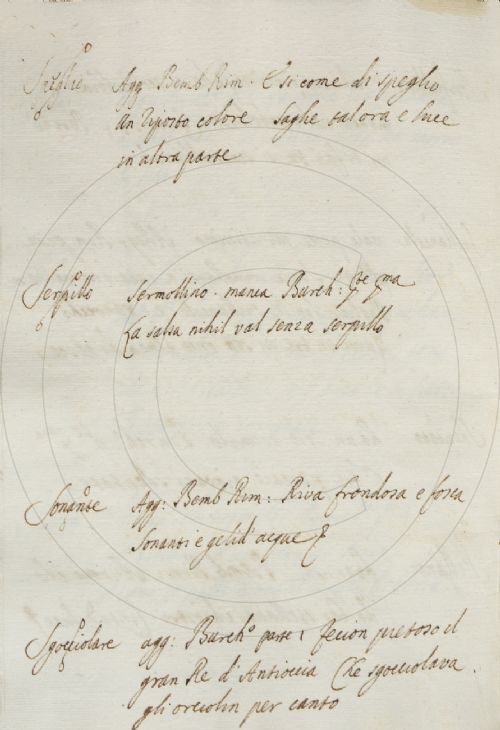 Speglio Agg Bemb Rim. E si come di speglio
un riposto colore saghe talora e luce
in altra parte
Serpillo Sermollino. manca Burch: pte pma
La salsa nihil val senza serpillo
Sonante Agg: Bemb Rim: Riva frondosa e fosca
Sonanti e gelid' acque
Sgocciolare agg: Burch.o parte: fecion pietoso il
gran Re d'Antioccia Che sgocciolava
gli orciolin per canto